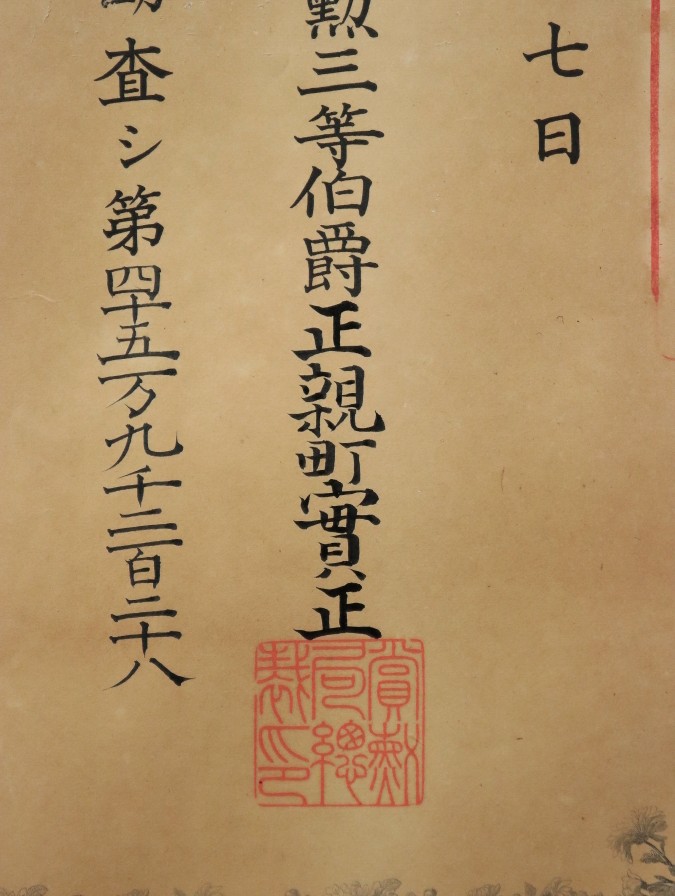 七日
勲三等伯爵正親町實正
査シ第四十五万九千二百二十八
賞勲
局總
裁印